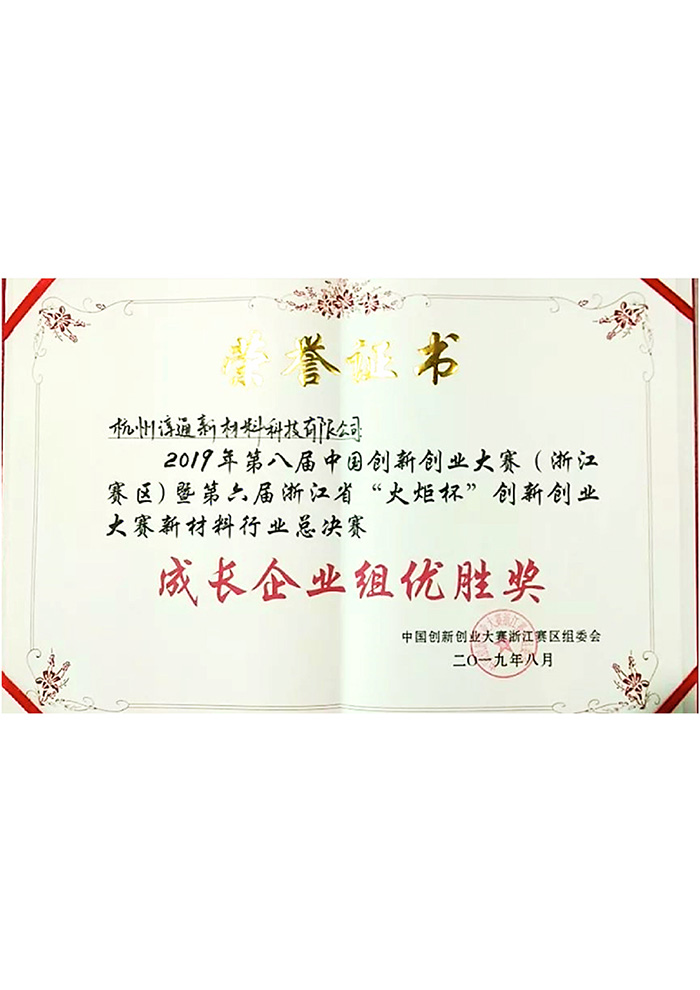 荣誉证书
杭州谆通新材料科技有限公司
2019年第八届中国创新创业大赛(浙江
赛区)暨第六届浙江省“火炬杯”创新创业
大赛新材料行业总决赛
成长企业组优胜奖
中国创新创业大赛浙江赛区组委会
二〇一九年八月